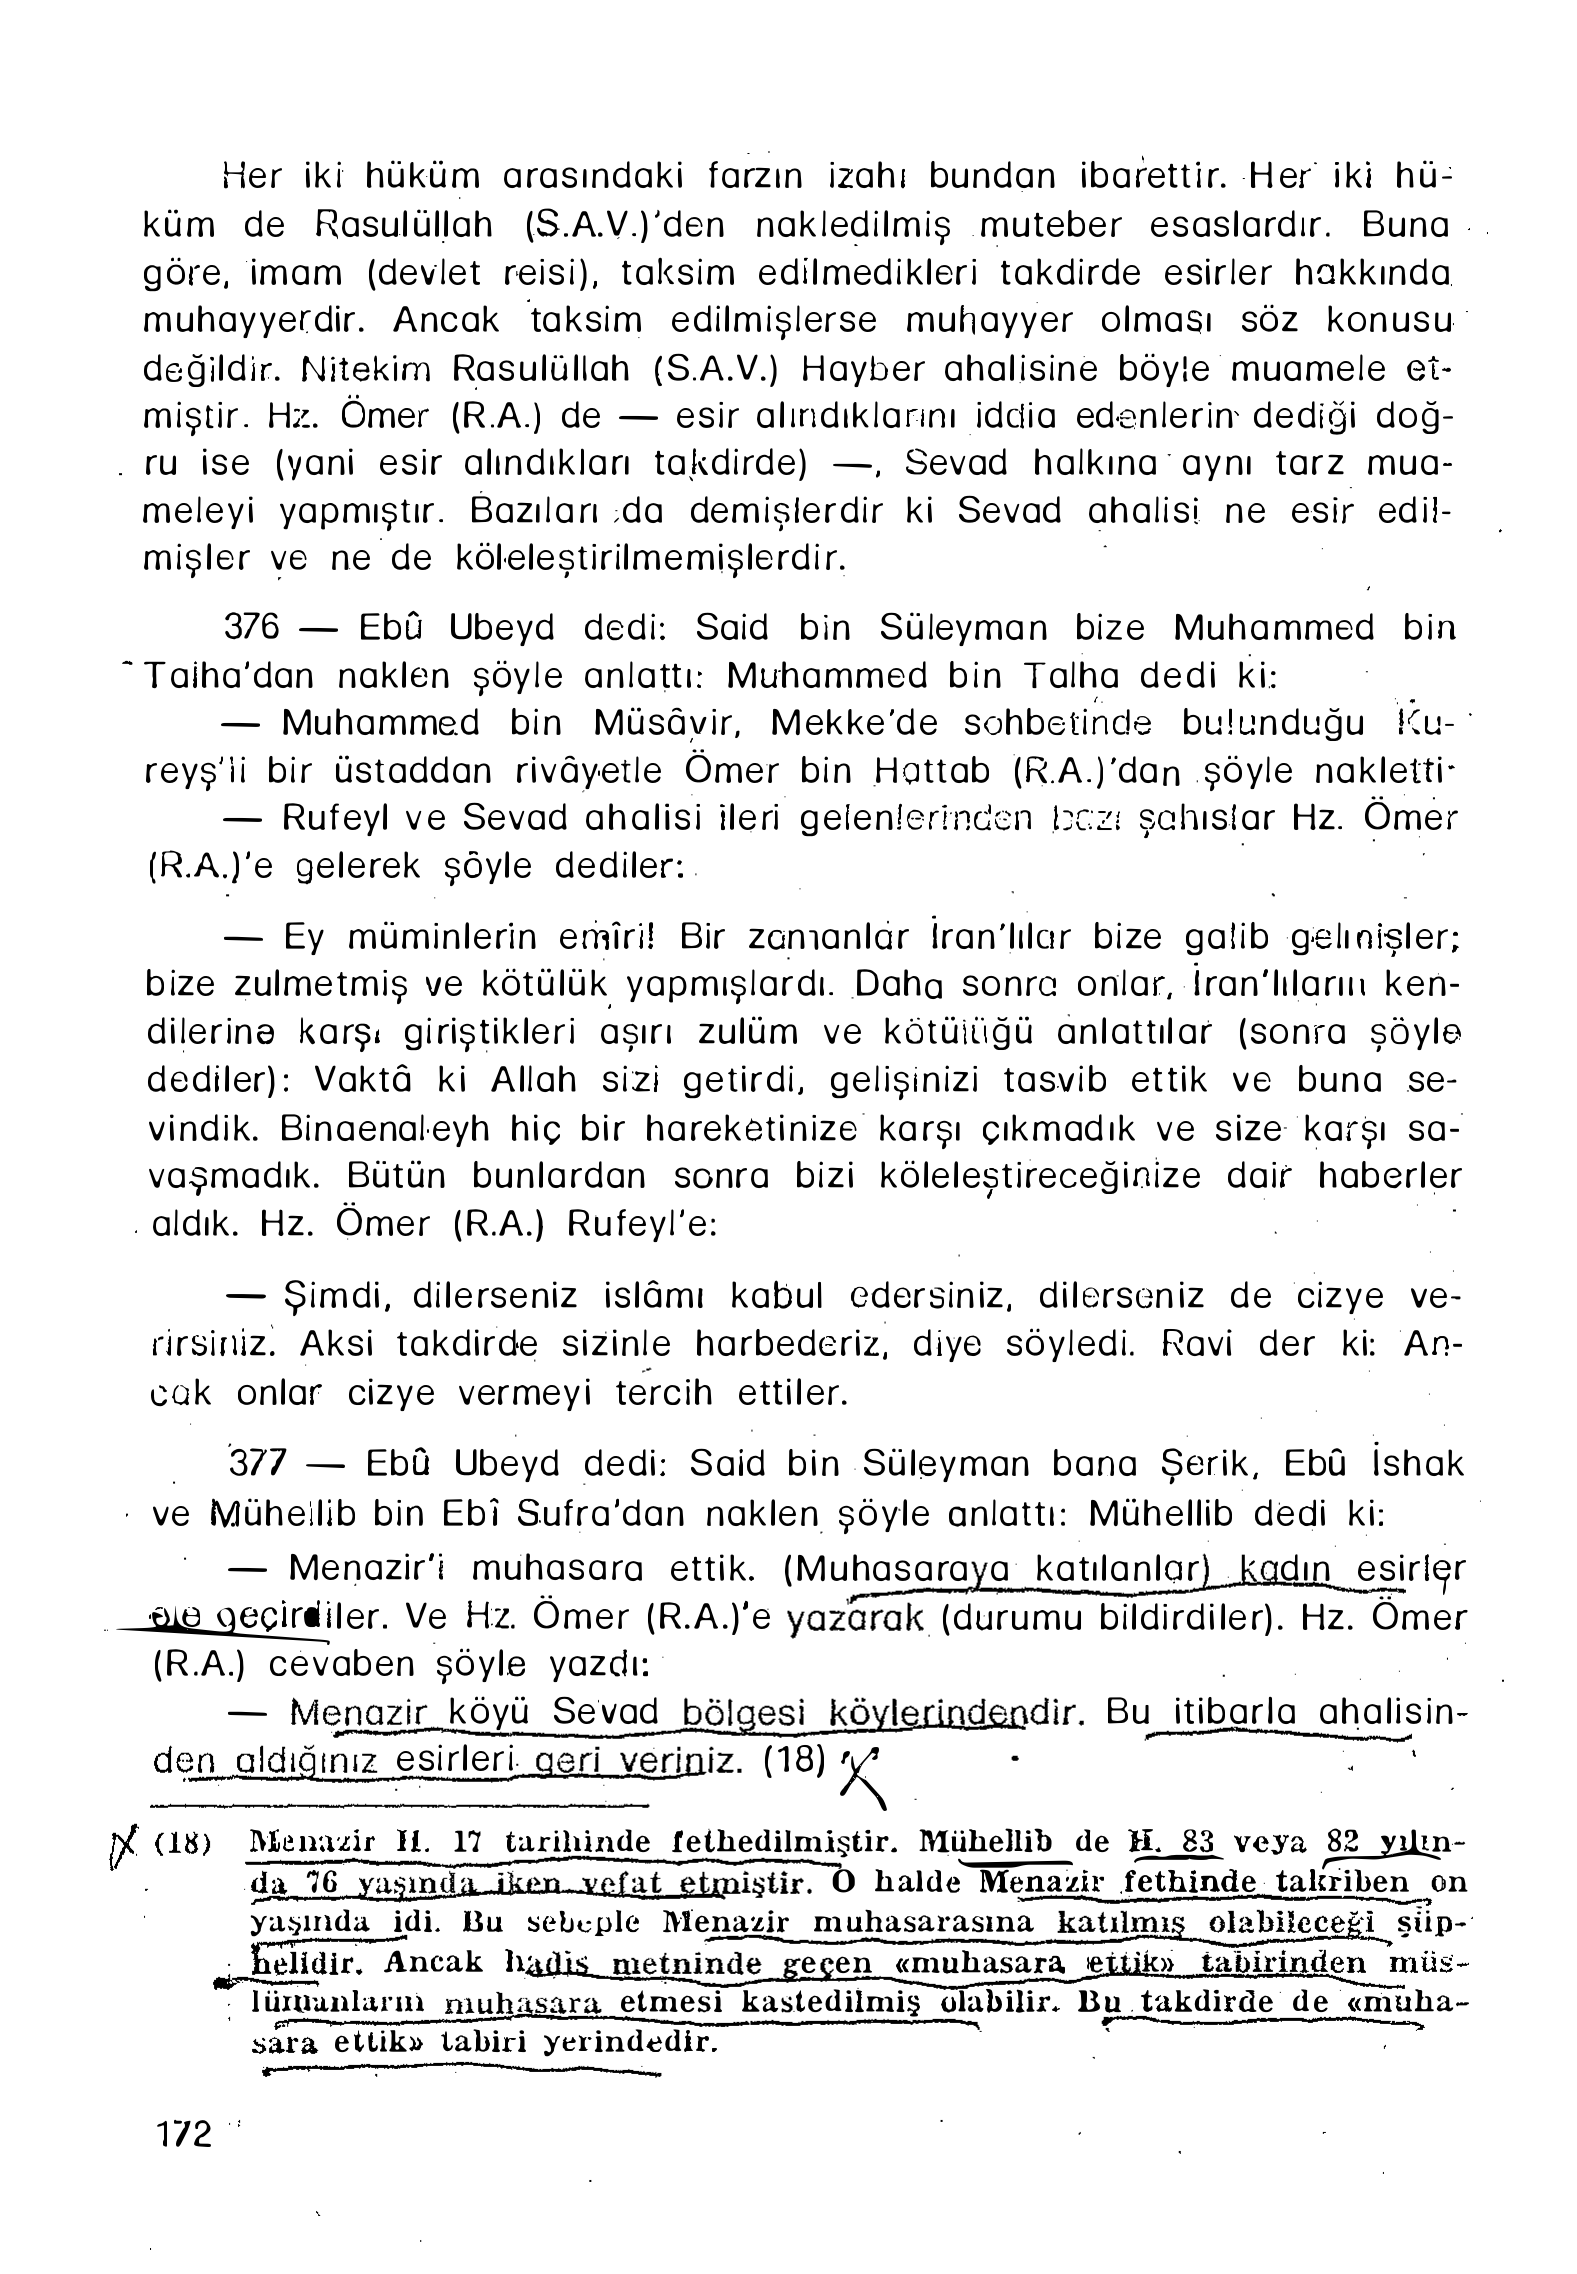 Her iki hüküm arasındaki farzın izahı bundan ibarettir. Her iki hü-
küm de Rasulüllah (S.A.V.)'den nakledilmiş muteber esaslardır. Buna
göre, imam (devlet reisi), taksim edilmedikleri takdirde esirler hakkında
muhayyerdir. Ancak taksim edilmişlerse muhayyer olması söz konusu
değildir. Nitekim Rasulüllah (S.A.V.) Hayber ahalisine böyle muamele et-
miştir. Hz. Ömer (R.A.) de — esir alındıklarını iddia edenlerin dediği doğ-
ru ise (yani esir alındıkları takdirde) —, Sevad halkına aynı tarz mua-
meleyi yapmıştır. Bazıları da demişlerdir ki Sevad ahalisi ne esir edil-
mişler ve ne de köleleştirilmemişlerdir.
376 — Ebû Ubeyd dedi: Said bin Süleyman bize Muhammed bin
Talha'dan naklen şöyle anlattı: Muhammed bin Talha dedi ki:
— Muhammed bin Müsâvir, Mekke'de sohbetinde bulunduğu Ku-
reyş'li bir üstaddan rivâyetle Ömer bin Hattab (R.A.)'dan şöyle nakletti·
— Rufeyl ve Sevad ahalisi ileri gelenlerinden bazı şahıslar Hz. Ömer
(R.A.)'e gelerek şöyle dediler:
— Ey müminlerin emîri! Bir zamanlar İran'lılar bize galib gelmişler;
bize zulmetmiş ve kötülük yapmışlardı. Daha sonra onlar, İran'lıların ken-
dilerine karşı giriştikleri aşırı zulüm ve kötülüğü anlattılar (sonra şöyle
dediler): Vaktâ ki Allah sizi getirdi, gelişinizi tasvib ettik ve buna se-
vindik. Binaenaleyh hiç bir hareketinize karşı çıkmadık ve size karşı sa-
vaşmadık. Bütün bunlardan sonra bizi köleleştireceğinize dair haberler
aldık. Hz. Ömer (R.A.) Rufeyl'e:
— Şimdi, dilerseniz islâmı kabul edersiniz, dilerseniz de cizye ve-
rirsiniz. Aksi takdirde sizinle harbederiz, diye söyledi. Ravi der ki: An-
cak onlar cizye vermeyi tercih ettiler.
377 — Ebû Ubeyd dedi: Said bin Süleyman bana Şerik, Ebû İshak
ve Mühellib bin Ebî Sufra'dan naklen şöyle anlattı: Mühellib dedi ki:
— Menazir'i muhasara ettik. (Muhasaraya katılanlar) kadın esirler
ele geçirdiler. Ve Hz. Ömer (R.A.)'e yazarak (durumu bildirdiler). Hz. Ömer
(R.A.) cevaben şöyle yazdı:
— Menazir köyü Sevad bölgesi köylerindendir. Bu itibarla ahalisin-
den aldığınız esirleri geri veriniz. (18)
(18) Menazir H. 17 tarihinde fethedilmiştir. Mühellib de H. 83 veya 82 yılın-
da 76 yaşında iken vefat etmiştir. O halde Menazir fethinde takriben on
yaşında idi. Bu sebeple Menazir muhasarasına katılmış olabileceği şüp-
helidir. Ancak hadis metninde geçen «muhasara ettik» tabirinden müs-
lümanların muhasara etmesi kastedilmiş olabilir. Bu takdirde de «muha-
sara ettik» tabiri yerindedir.
172